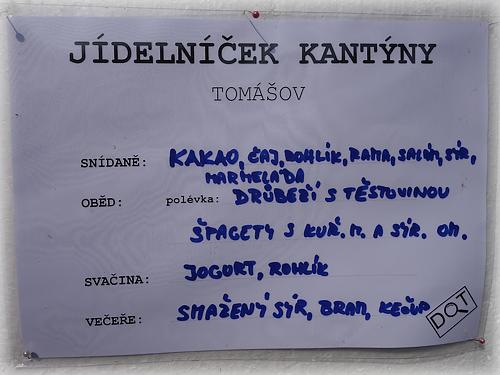 JÍDELNÍČEK KANTÝNY
TOMÁŠOV
SNÍDANĚ: KAKAO, ČAJ, ROHLÍK, RAMA, SALÁM, SÝR,
MARMELÁDA
OBĚD: polévka: DRŮBEŽÍ S TĚSTOVINOU
ŠPAGETY S KUŘ. M. A SÝR. OM.
SVAČINA: JOGURT, ROHLÍK
VEČEŘE: SMAŽENÝ SÝR, BRAM, KEČUP
DOT